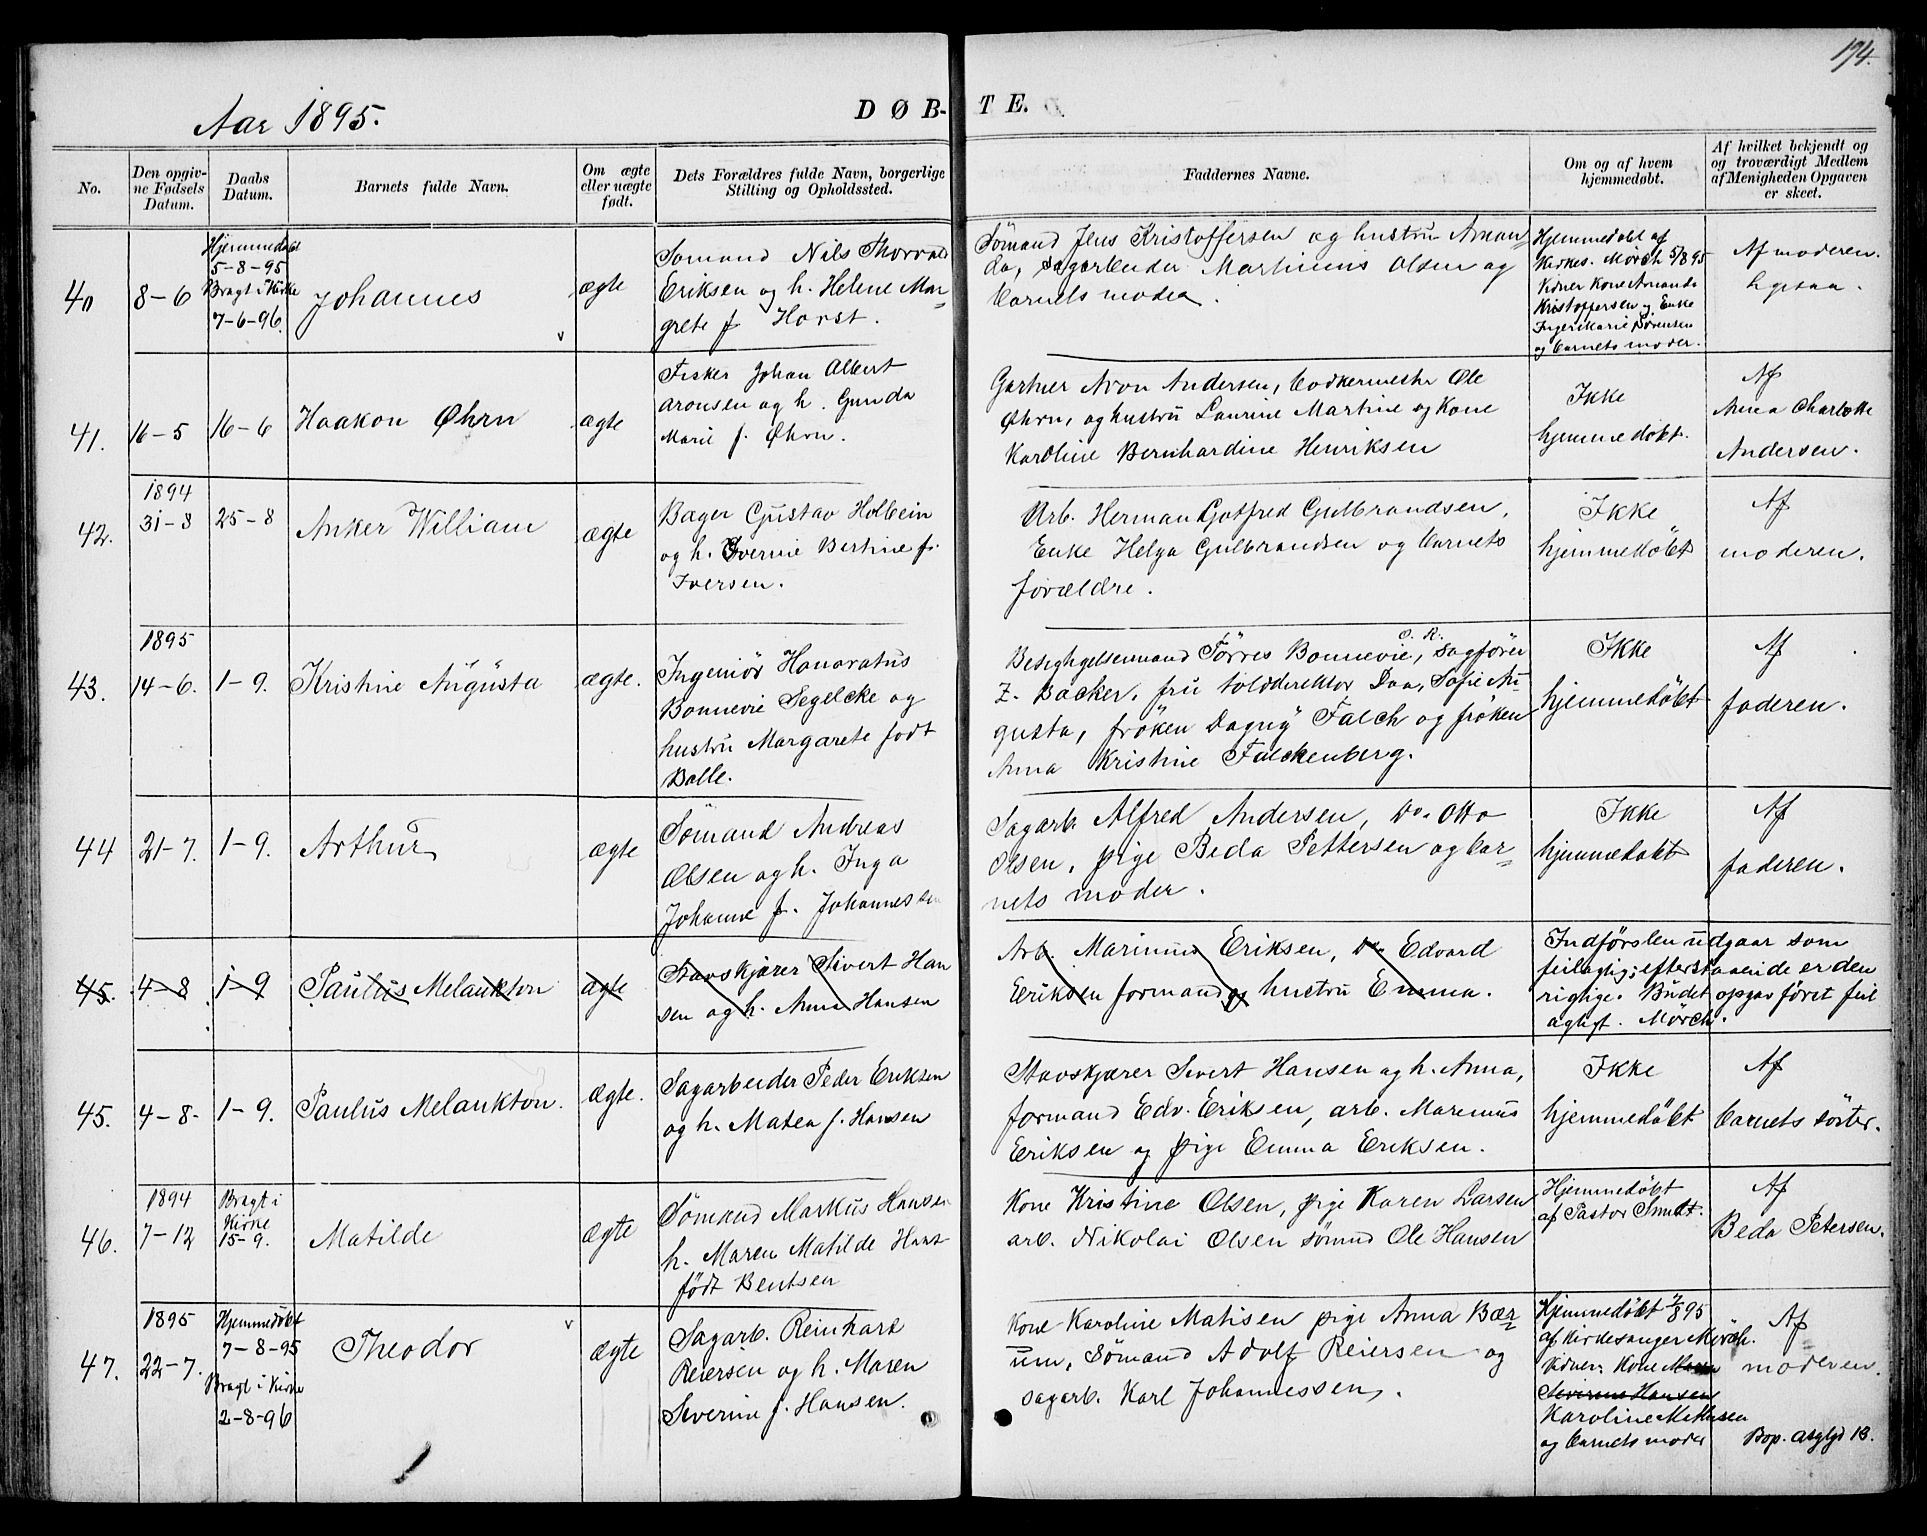 194.
Aar 1895.
DØB-
TE.
No.
Den opgiv-
ne Fødsels
Datum.
Daabs
Datum.
Barnets fulde Navn.
Om ægte
eller uægte
født.
Dets Forældres fulde Navn, borgerlige
Stilling og Opholdssted.
Faddernes Navne.
Om og af hvem
hjemmedøbt.
Af hvilket bekjendt og
og troværdigt Medlem
af Menigheden Opgaven
er skeet.
40
8-6
Hjemmedøbt
5-8-95
Bragt i Kirke
7-6-96.
Johannes
ægte
Sømand Nils Thorvald
Eriksen og h. Helene Mar-
grete f. Horst.
Sømand Jens Kristoffersen og hustru Aman-
da, sagarbeider Martinius Olsen og
barnets moder.
Hjemmedøbt af
Kirkes. Mörch 5/8 95
Vidner Kone Amanda
Kristoffersen og Enke
Ingerikarie Sørensen
og barnets moder.
Af moderen.
41.
16-5
16-6
Haakon Øhrn
ægte
Fisker Johan Albert
Aronsen og h. Gunda
Marie f. Øhrn.
Gartner Aron Andersen, bødkermester Ole
Øhrn, og hustru Laurine Martine og Kone
Karoline Bernhardine Henriksen
Ikke
hjemmedøbt.
Af
Anna Charlotte
Andersen.
42.
1894
31-8
25-8
Anker William
ægte
Bager Gustav Holbein
og h. Iverine Bertine f.
Iversen.
Arb. Herman Gotfred Gulbrandsen,
Enke Helga Gulbrandsen og barnets
forældre.
Ikke
hjemmedøbt
Af
moderen.
43.
1895
14-6.
1-9.
Kristine Augusta
ægte.
Ingeniør Honoratus
Bonnevie Segelcke og
hustru Margarete født
Balle.
Besigtigelsesmand Törres Bonnevie, O.R. sagfører
Z. Backer, fru tolddirektør Daa, Sofie Au-
gusta, frøken Dagny Falch og frøken
Anna Kristine Falckenberg.
Ikke
hjemmedøbt
Af
faderen.
44
21-7.
1-9.
Arthur
ægte
Sømand Andreas
Olsen og h. Inga
Johanne f. Johannessen
Sagarb. Alfred Andersen, Do. Otto
Olsen, pige Beda Pettersen og bar-
nets moder.
Ikke
hjemmedøbt
Af
faderen.
45.
4-8
1-9
Paulus Melankton
ægte
Stavskjærer Sivert Han
sen og h. Anna Hansen
Arb. Marinus Eriksen, Do. Edvard
Eriksen formand og hustru Emma.
Indförslen udgaar som
feilagtig; efterstaaende er den
rigtige. Budet opgav føret feil
agtigt. Mörch.
45.
4-8-
1-9.
Paulus Melankton.
ægte.
Sagarbeider Peder Eriksen
og h. Matea f. Hansen
Stavskjærer Sivert Hansen og h. Anna,
formand Edv. Eriksen, arb. Marenus
Eriksen og pige Emma Eriksen.
Ikke
hjemmedøbt
Af
barnets söster.
46.
1894
7-12
Bragt i
Kirke
15-9.
Matilde
ægte
Sømand Markus Hansen
h. Maren Matilde Hans
født Bentsen
Kone Kristine Olsen, pige Karen Larsen
arb. Nikolai Olsen sømnd Ole Hansen
Hjemmedøbt
af Pastor Smidt.
Af
Beda Petersen.
47.
1895
22-7.
Hjemmedøbt
7-8-95
Bragt i Kirke
2-8-96
Theodor
ægte
Sagarb. Reinhart
Reiersen og h. Maren
Severine f. Hansen.
Kone Karoline Matisen pige Anna Bær-
um, Sömand Adolf Reiersen og
sagarb. Karl Johannessen.
Hjemmedøbt 7/8 95
af Kirkesanger Mörch.
Vidner: Kone Maren
Severine Hansen
Karoline Mathisen
og barnets moder
Af
moderen.
Bop. Asylgd 13.